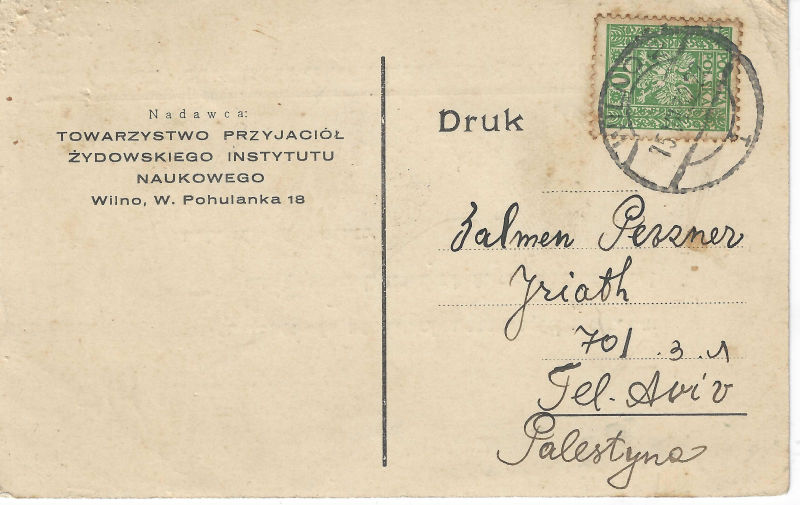 Nadawca:
TOWARZYSTWO PRZYJACIÓŁ
ŻYDOWSKIEGO INSTYTUTU
NAUKOWEGO
Wilno, W. Pohulanka 18
Druk
POLSKA
15
1
Zalmen Peszner
Jriath
701.3.1
Tel-Aviv
Palestyna